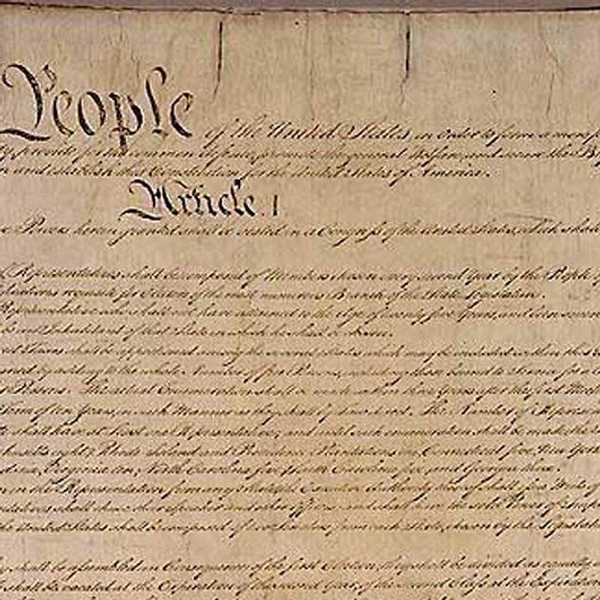 People of the United States, in Order to form a more
provide for the common defence, promote the general Welfare, and secure the
and establish this Constitution for the United States of America.
Article. I
Powers herein granted shall be vested in a Congress of the United States, which shall
Representatives shall be composed of Members chosen every second Year by the People
requisite for Electors of the most numerous Branch of the State Legislature.
Representative who shall not have attained to the Age of twenty five Years, and been seven
be an Inhabitant of that State in which he shall be chosen.
Taxes shall be apportioned among the several States which may be included within this
by adding to the whole Number of free Persons, including those bound to Service for a
Persons. The actual Enumeration shall be made within three Years after the first Meeting
Term of ten Years, in such Manner as they shall by Law direct. The Number of
shall have at Least one Representative; and until such enumeration shall be made, the
eight, Rhode Island and Providence Plantations one, Connecticut five, New York
Virginia ten, North Carolina five, South Carolina five, and Georgia three.
in the Representation from any State, the Executive Authority thereof shall issue Writs of
shall chuse their Speaker and other Officers; and shall have the sole Power of
United States shall be composed of two Senators from each State, chosen by the
shall be assembled in Consequence of the first Election, they shall be divided as equally
shall be vacated at the Expiration of the second Year, of the second Class at the Expiration